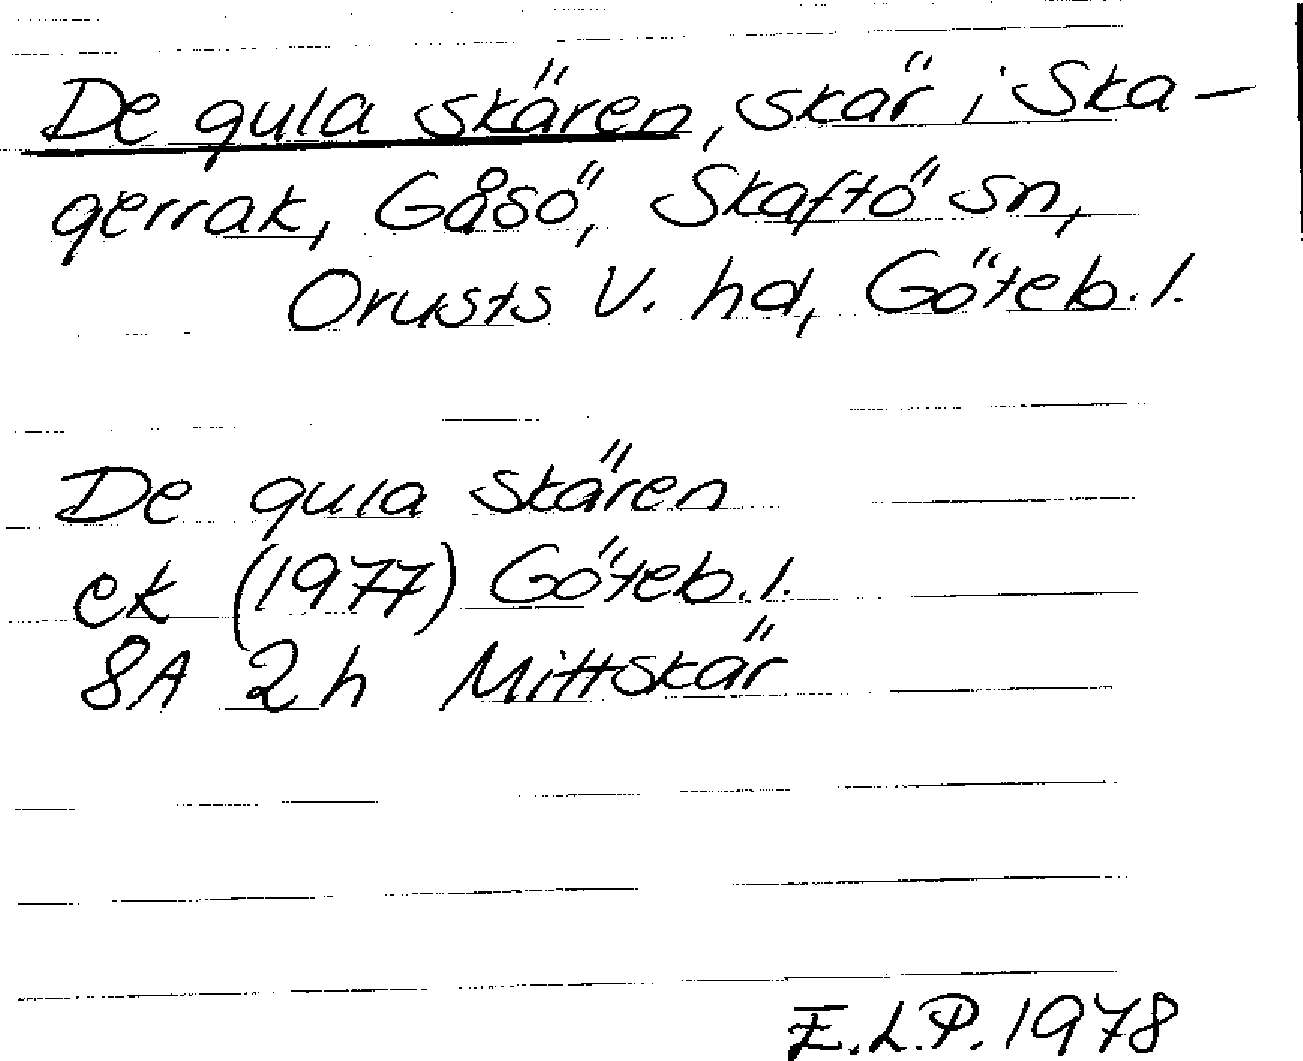 De gula skären, skär i Ska-
gerrak, Gåsö, Skaftö sn,
Orusts V. hd, Göteb. l.
De gula skären
ek (1977) Göteb. l.
8A 2h Mittskär
E.L.P. 1978